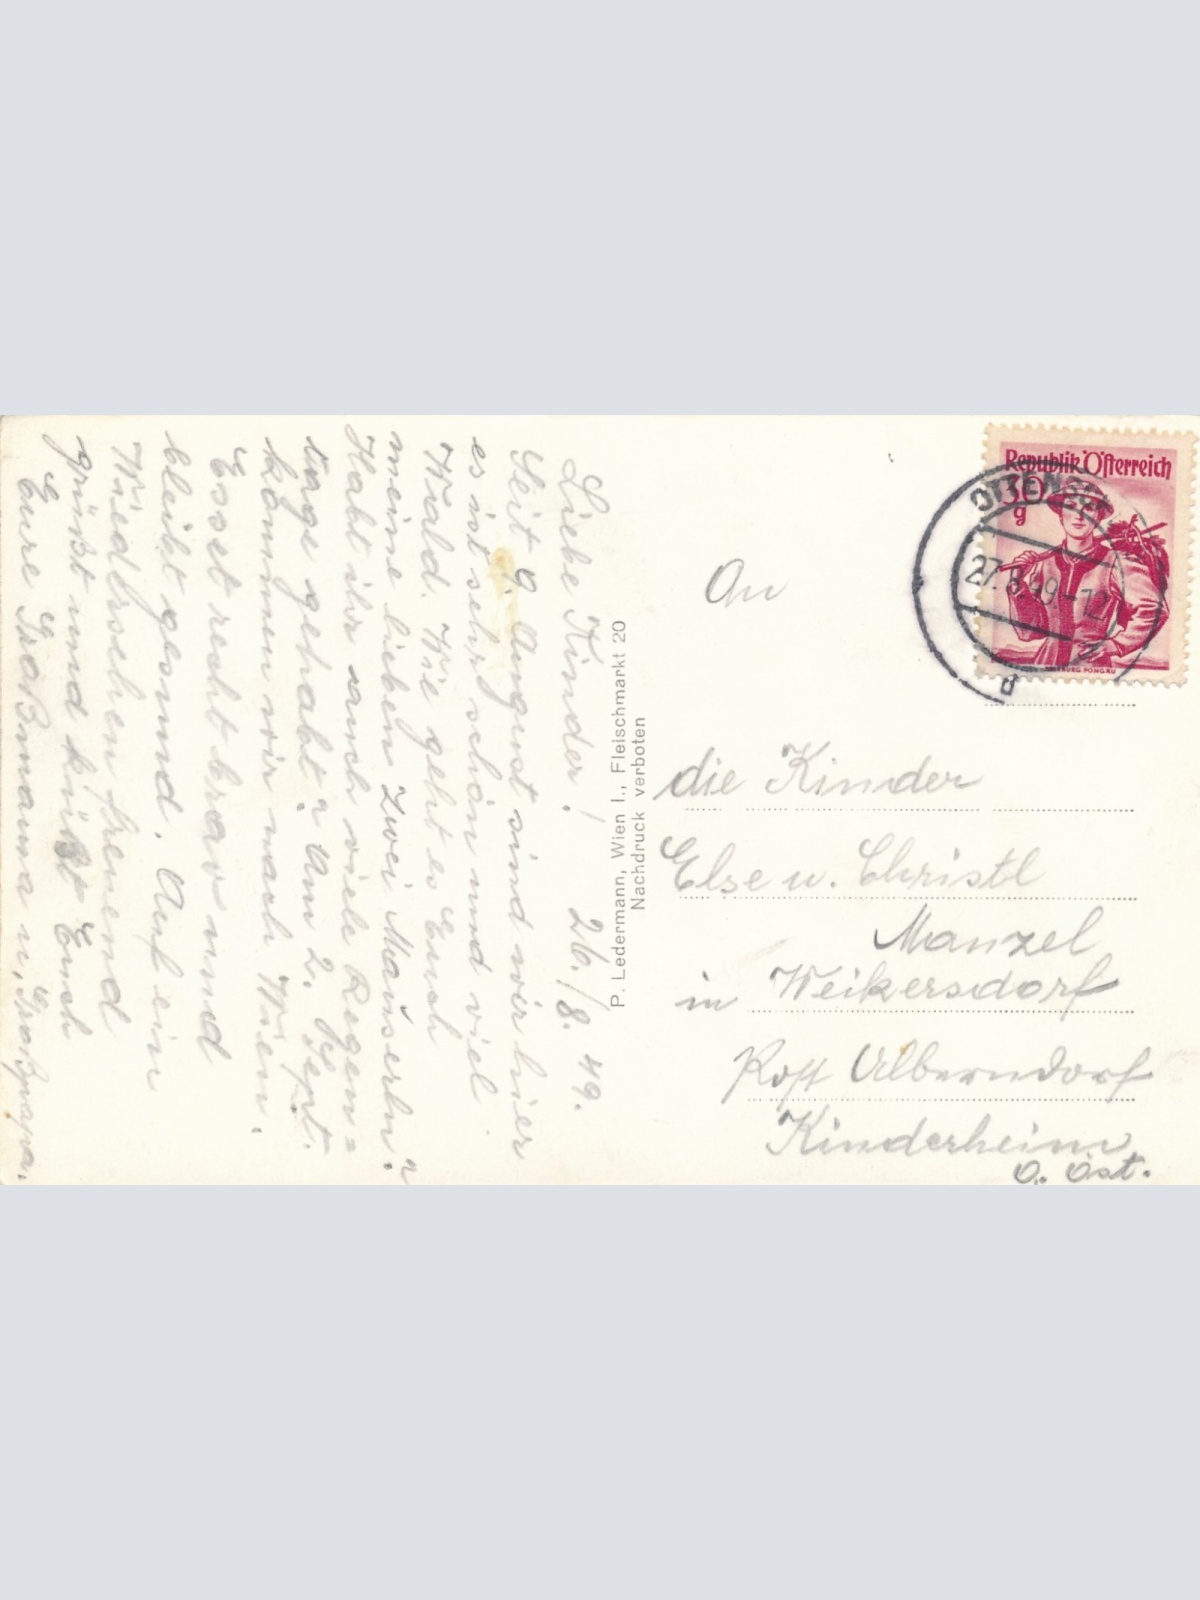 Liebe Kinder! 26./8. 49.
Seit 9. August sind wir hier
es ist sehr schön und viel
Wald. Wie geht es Euch
meine lieben zwei Mauserln?
Habt ihr auch viele Regen=
tage gehabt? Am 2. Sept.
kommen wir nach Wien.
Esset recht brav und
bleibt gesund. Auf ein
Wiedersehen freuend
grüßt und küßt Euch
Eure Großmama u. Großpapa.
P. Ledermann, Wien I., Fleischmarkt 20
Nachdruck verboten
Republik Österreich
30
g
27.8.49-12
d
An
die Kinder
Else u. Christl
Manzel
in Weikersdorf
Post Alberndorf
Kinderheim
O. Öst.